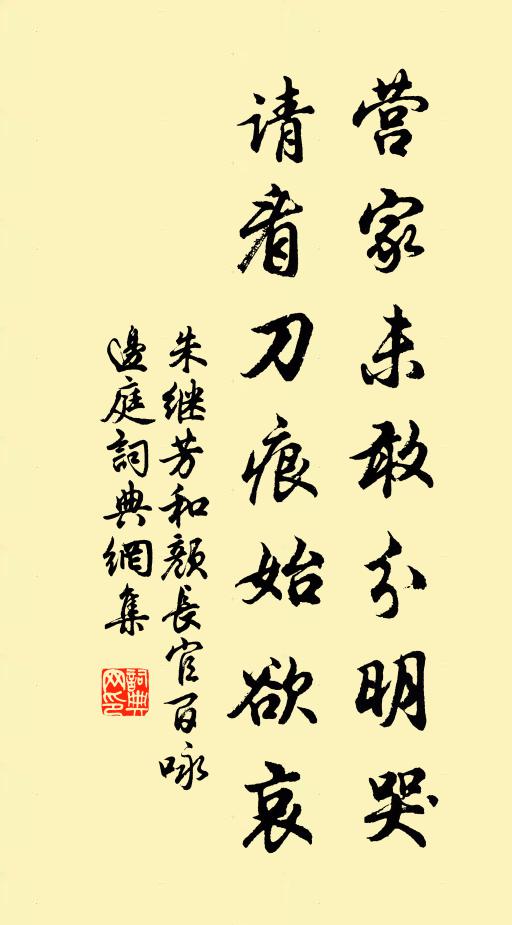 营家未敢分明哭
请看刀痕始欲哀
朱继芳和颜长官百咏
边庭詞典網集
詞典
网印